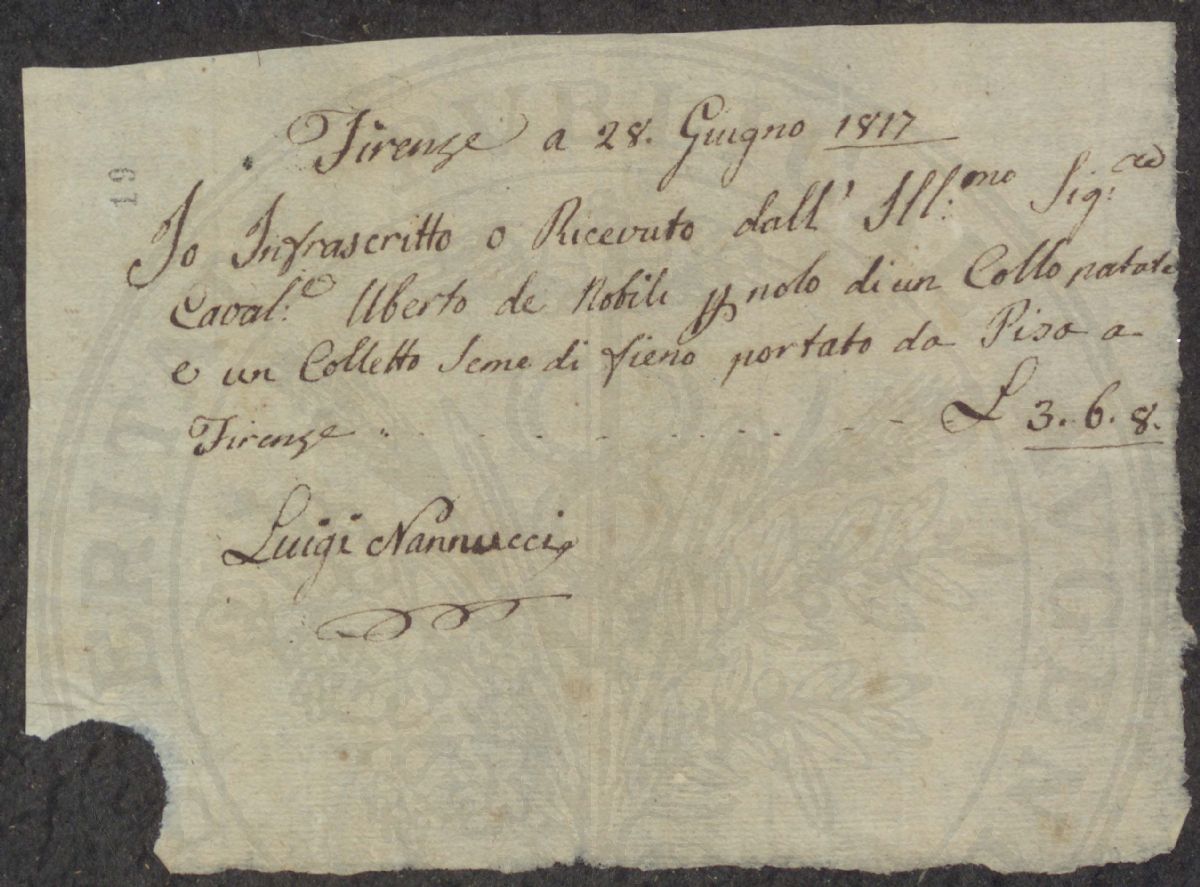 Firenze a 28. Giugno 1817
19
Io Infrascritto o Ricevuto dall' Ill:mo Sig:re
Caval:e Uberto de Nobili p nolo di un Collo patate
e un Colletto Seme di fieno portato da Pisa a
Firenze L 3. 6. 8.
Luigi Nannucci